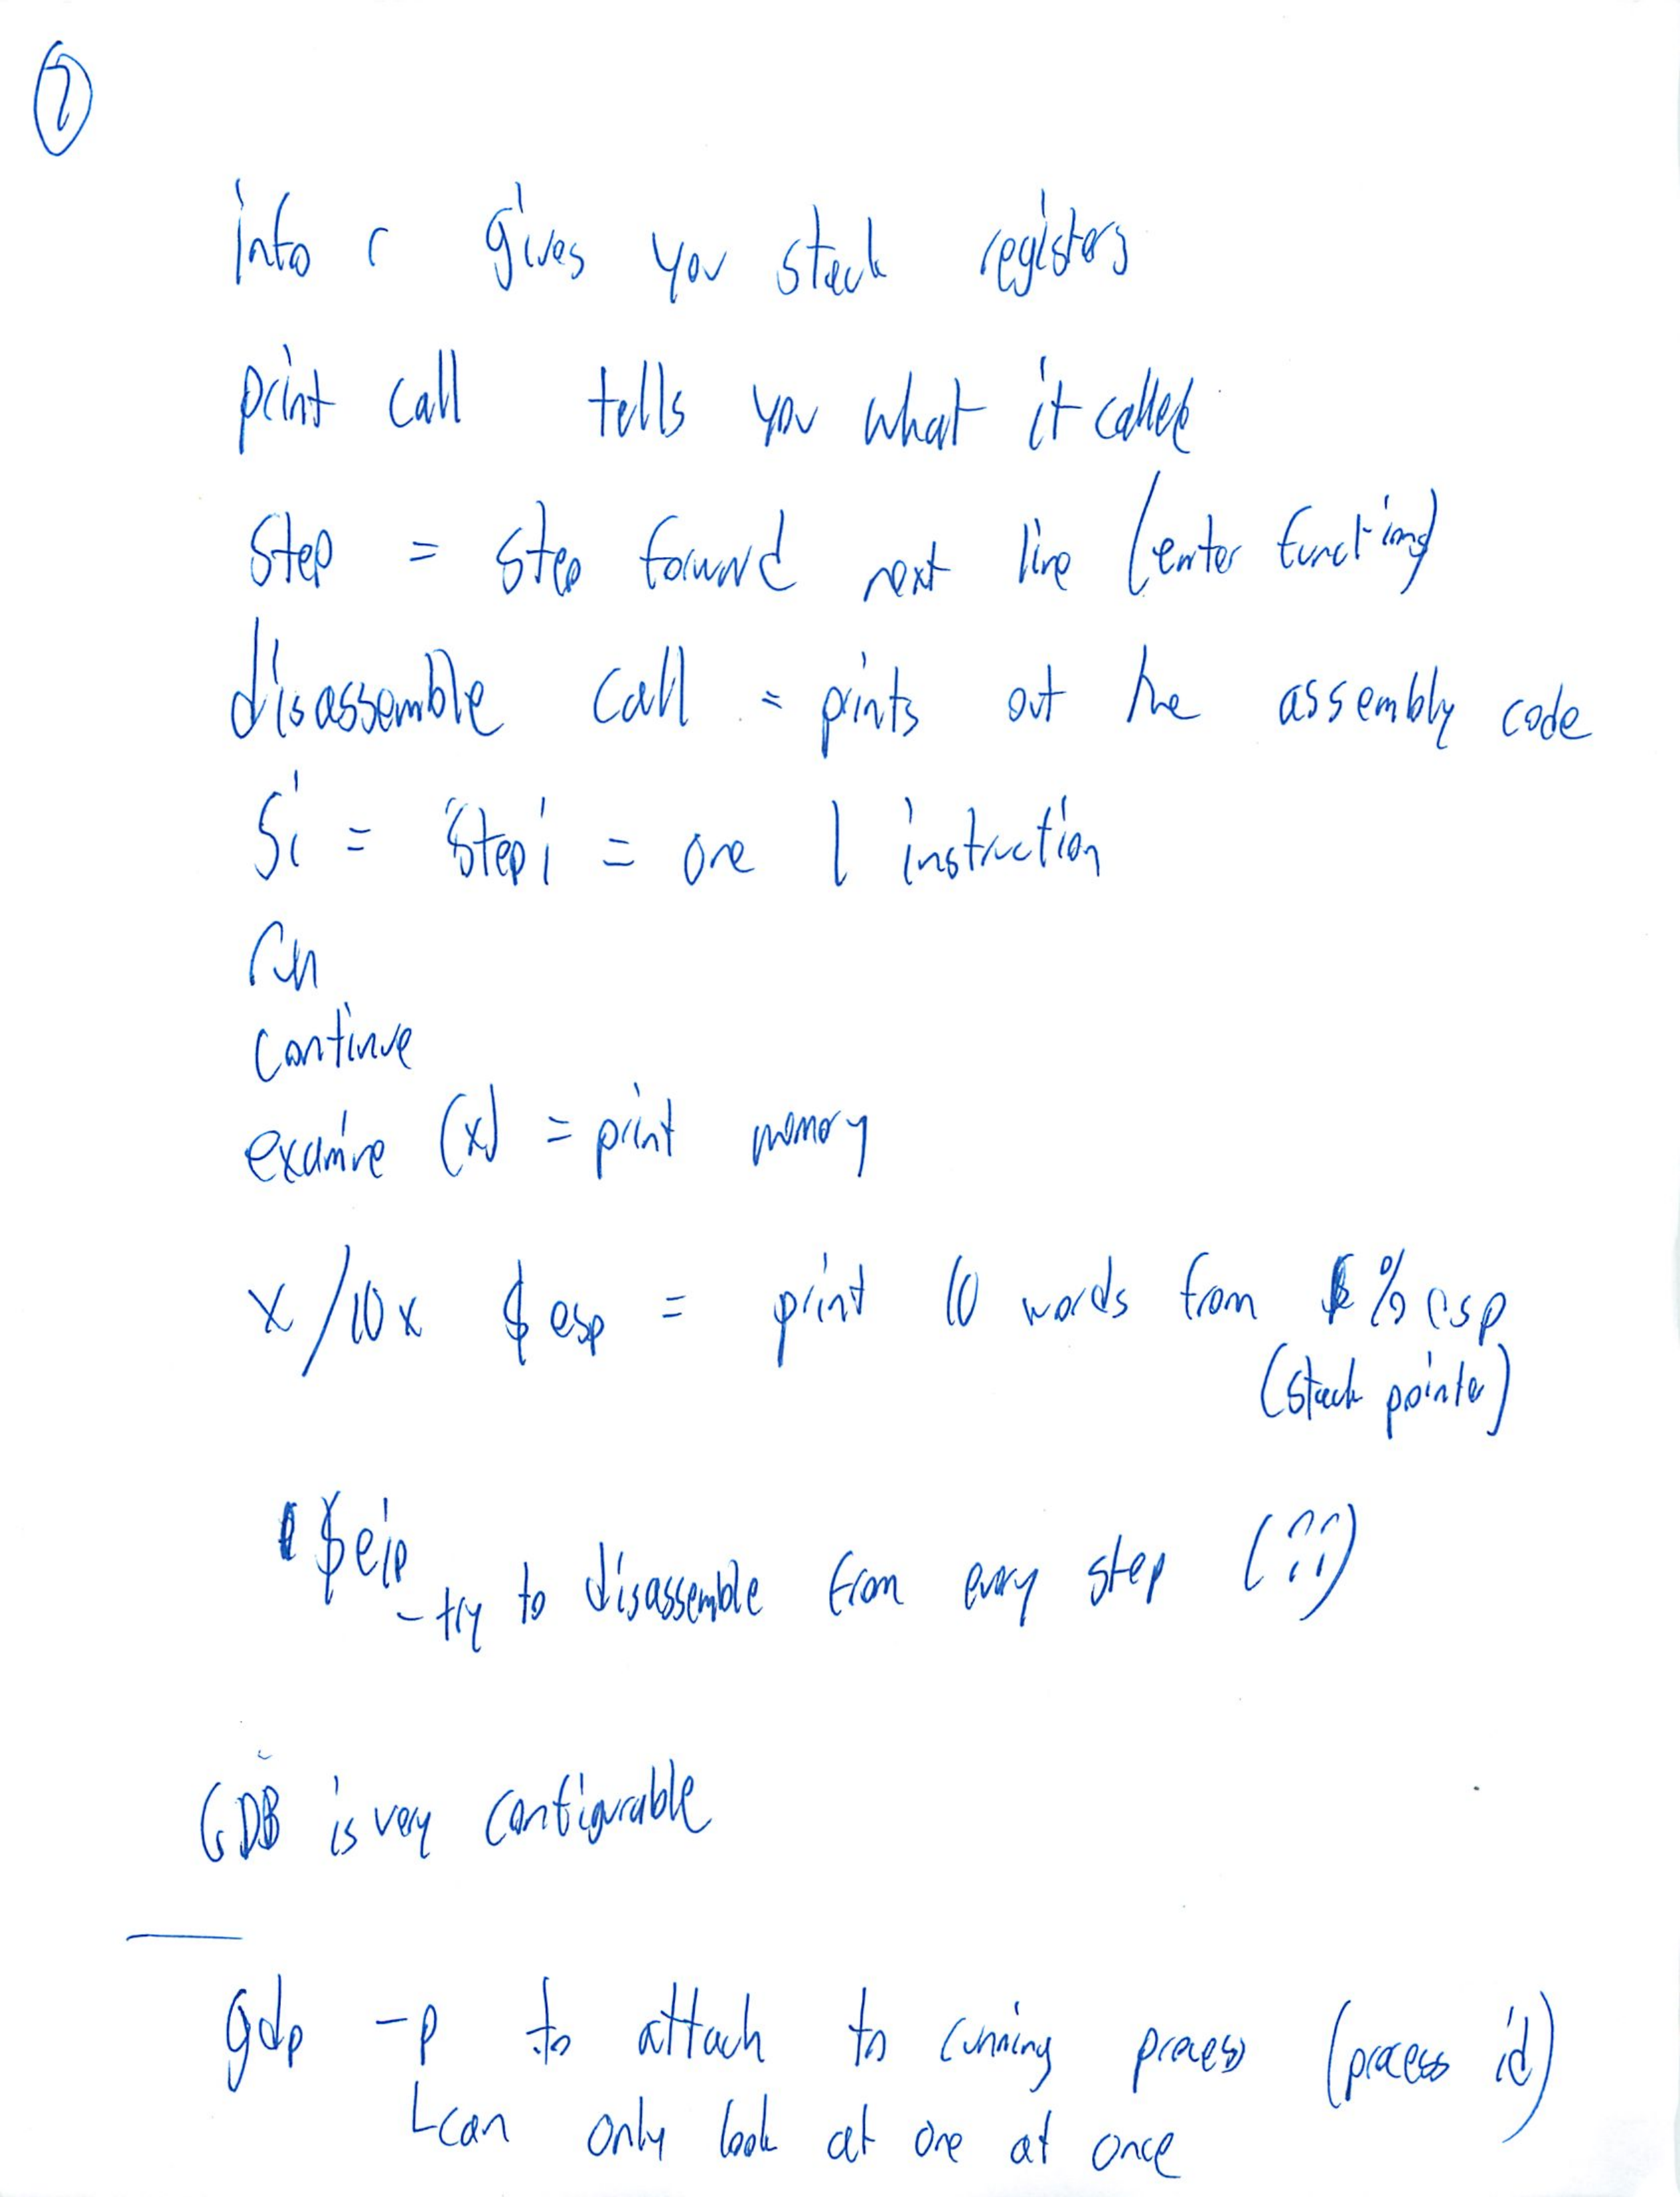 7
info r gives you stack registers
print call tells you what it called
step = step forward next line (enter functions)
disassemble call = prints out the assembly code
Si = Stepi = one 1 instruction
run
continue
examine (x) = print memory
x/10x $esp = print 10 words from %esp
(stack pointer)
$eip
- try to disassemble from every step (??)
GDB is very configurable
gdp -p to attach to running process (process id)
can only look at one at once